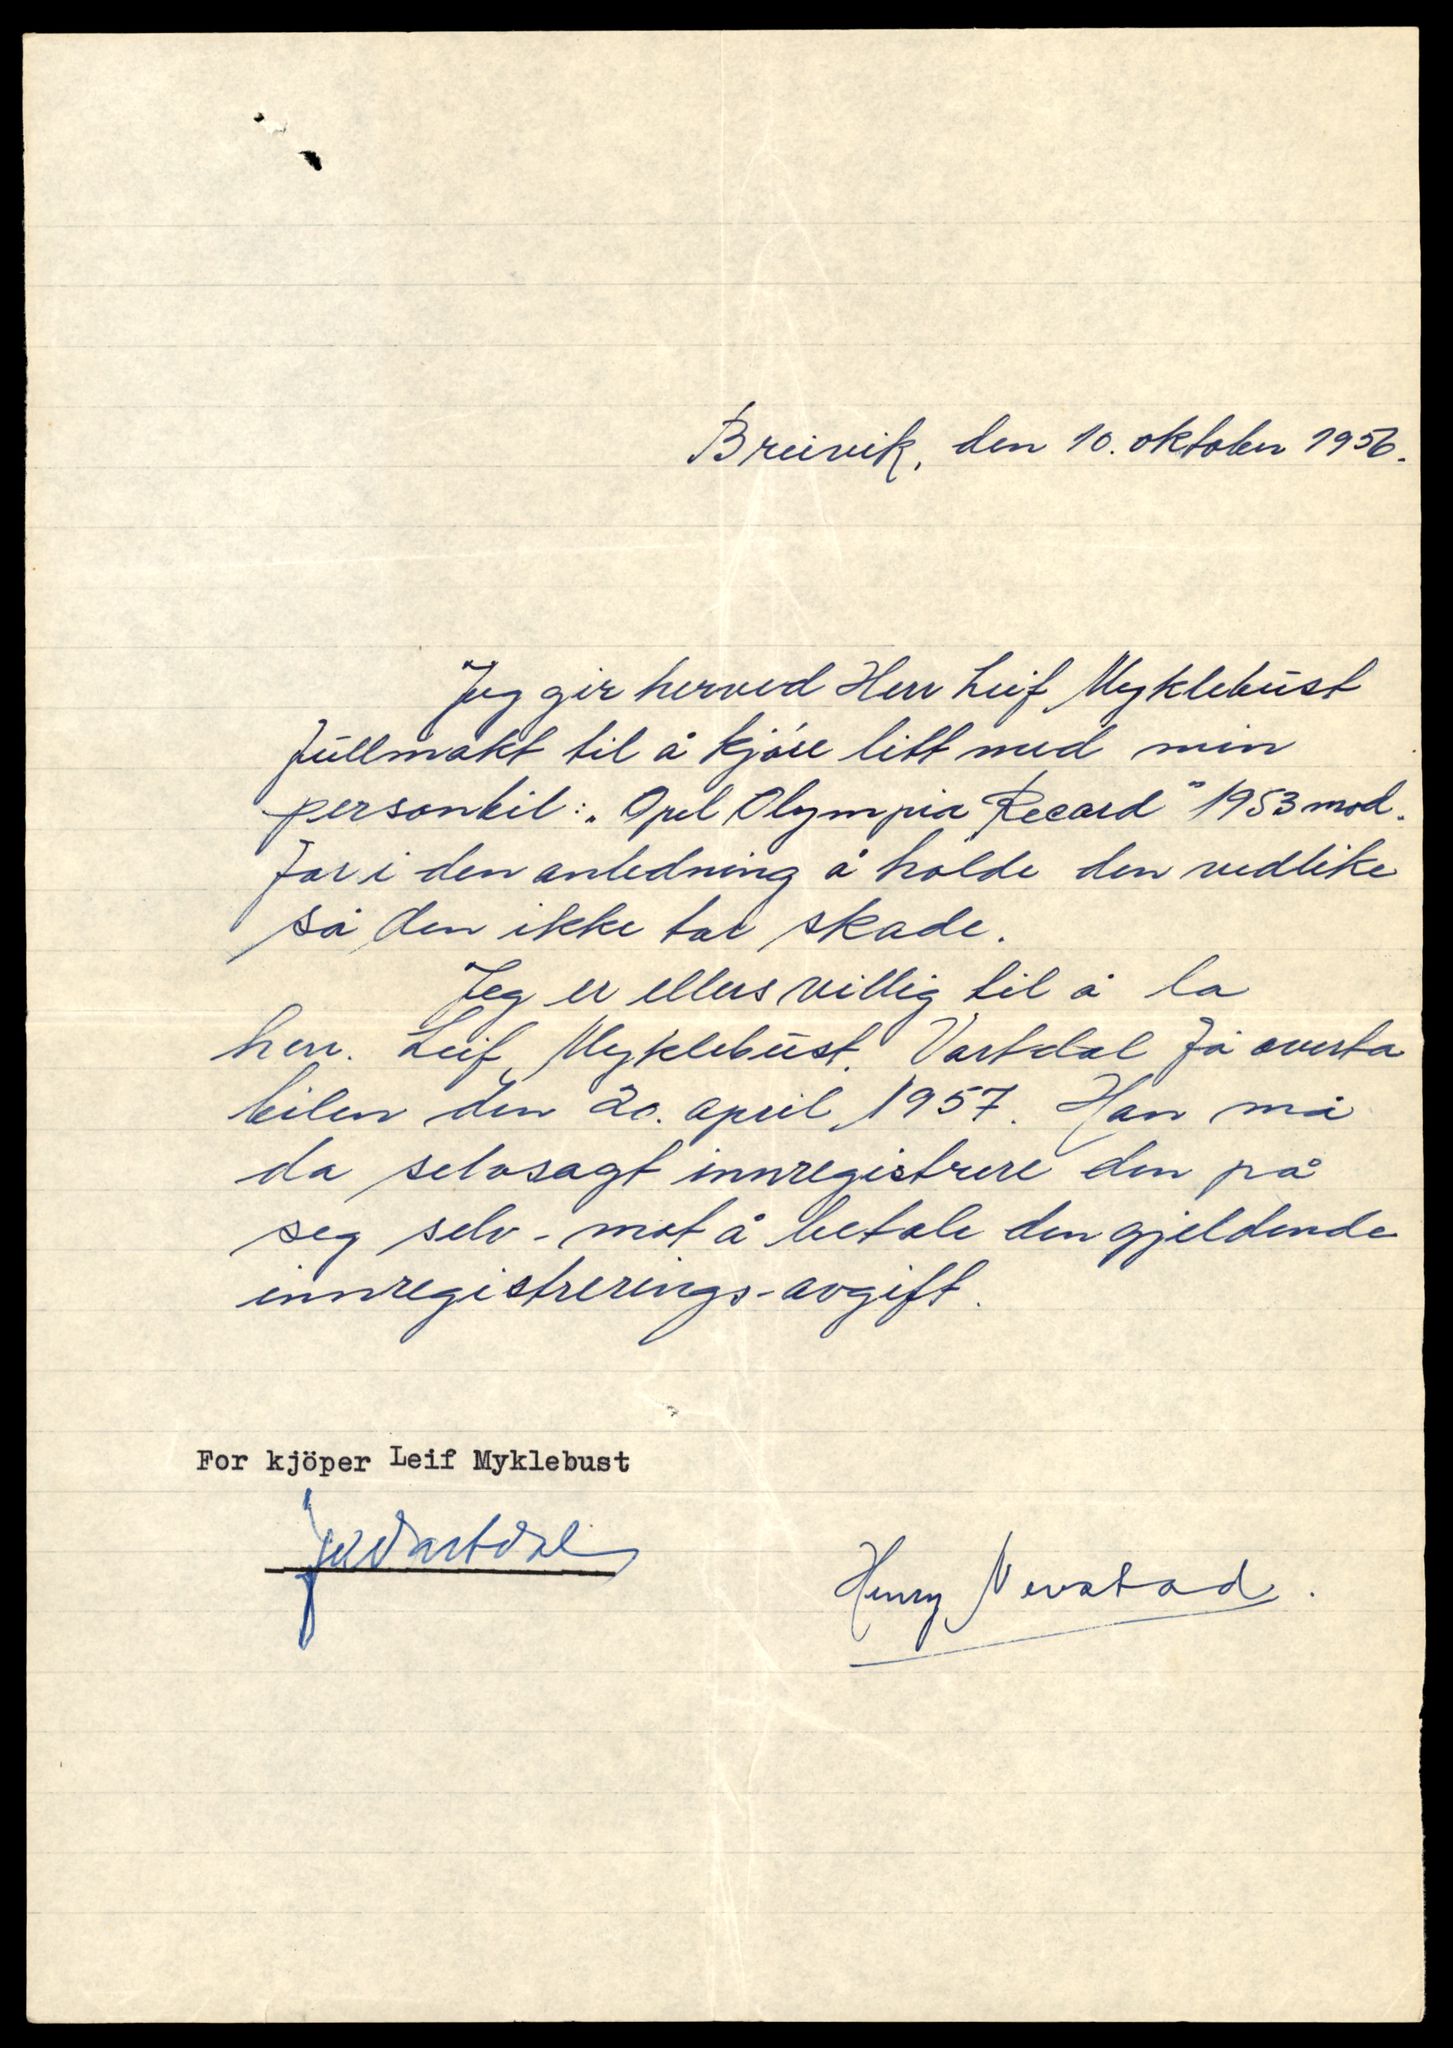 Breivik, den 10. oktober 1956.
Jeg gir herved Herr Leif Myklebust
fullmakt til å kjøre litt med min
personbil: „Opel Olympia Recard" 1953 mod.
for i den anledning å holde den vedlike
så den ikke tar skade.
Jeg er ellers villig til å la
herr. Leif Myklebust. Vartdal få overta
bilen den 20. april 1957. Han må
da selvsagt innregistrere den på
seg selv - mot å betale den gjeldende
innregistrerings-avgift.
For kjöper Leif Myklebust
Vartdal
Henry Nevstad.